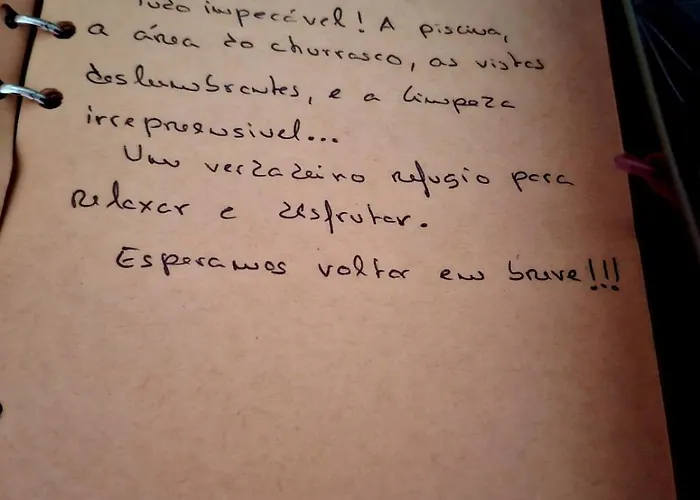 Tudo impecável! A piscina,
a área do churrasco, as vistas
deslumbrantes, e a limpeza
irrepreensivel...
Um verdadeiro refugio para
relaxar e desfrutar.
Esperamos voltar em breve!!!